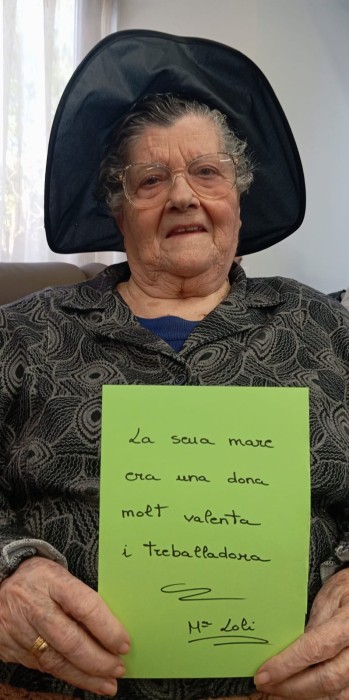 La seua mare
era una dona
molt valenta
i treballadora
Mª Loli